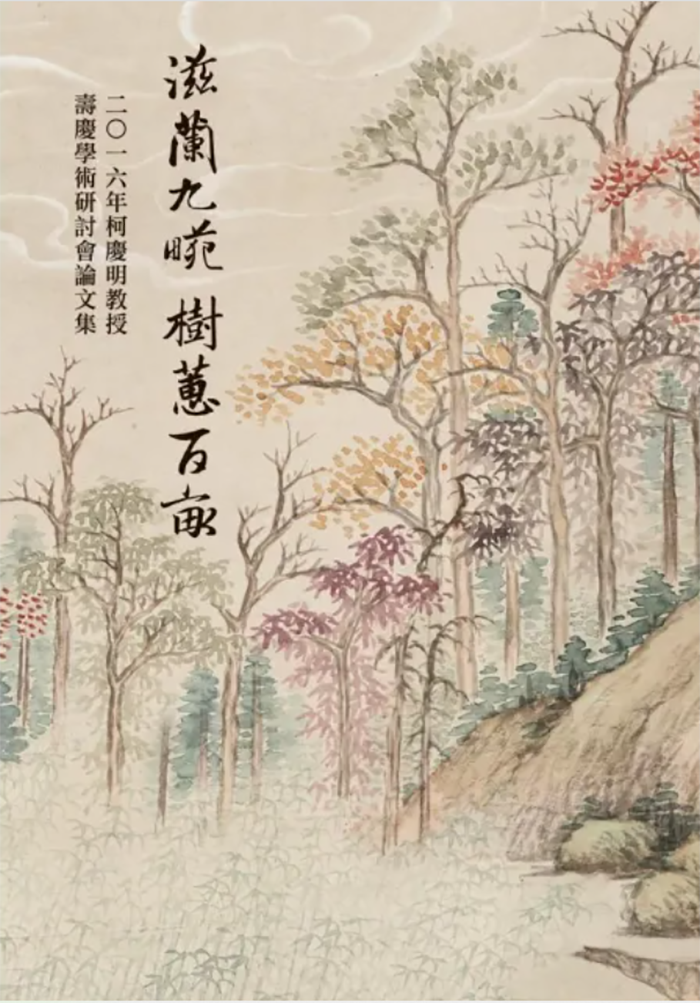 滋蘭九畹 樹蕙百畝
二〇一六年柯慶明教授
壽慶學術研討會論文集